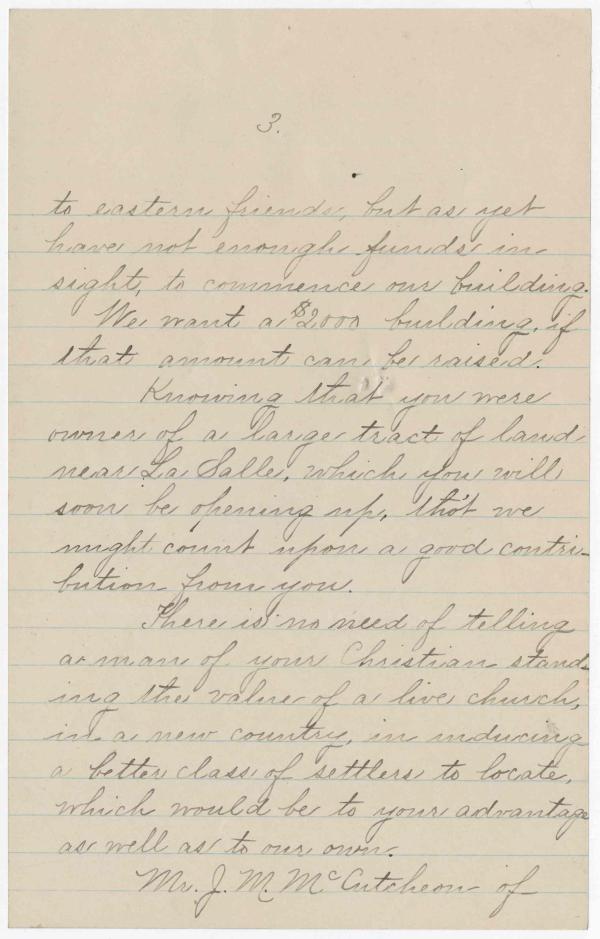 3.
to eastern friends, but as yet
have not enough funds in
sight, to commence our building.
We want a $2000 building, if
that amount can be raised.
Knowing that you were
owner of a large tract of land
near La Salle, which you will
soon be opening up, tho't we
might count upon a good contri-
bution from you.
There is no need of telling
a man of your Christian stand-
ing the value of a live church,
in a new country, in inducing
a better class of settlers to locate,
which would be to your advantage
as well as to our own.
Mr. J. M. McCutcheon of